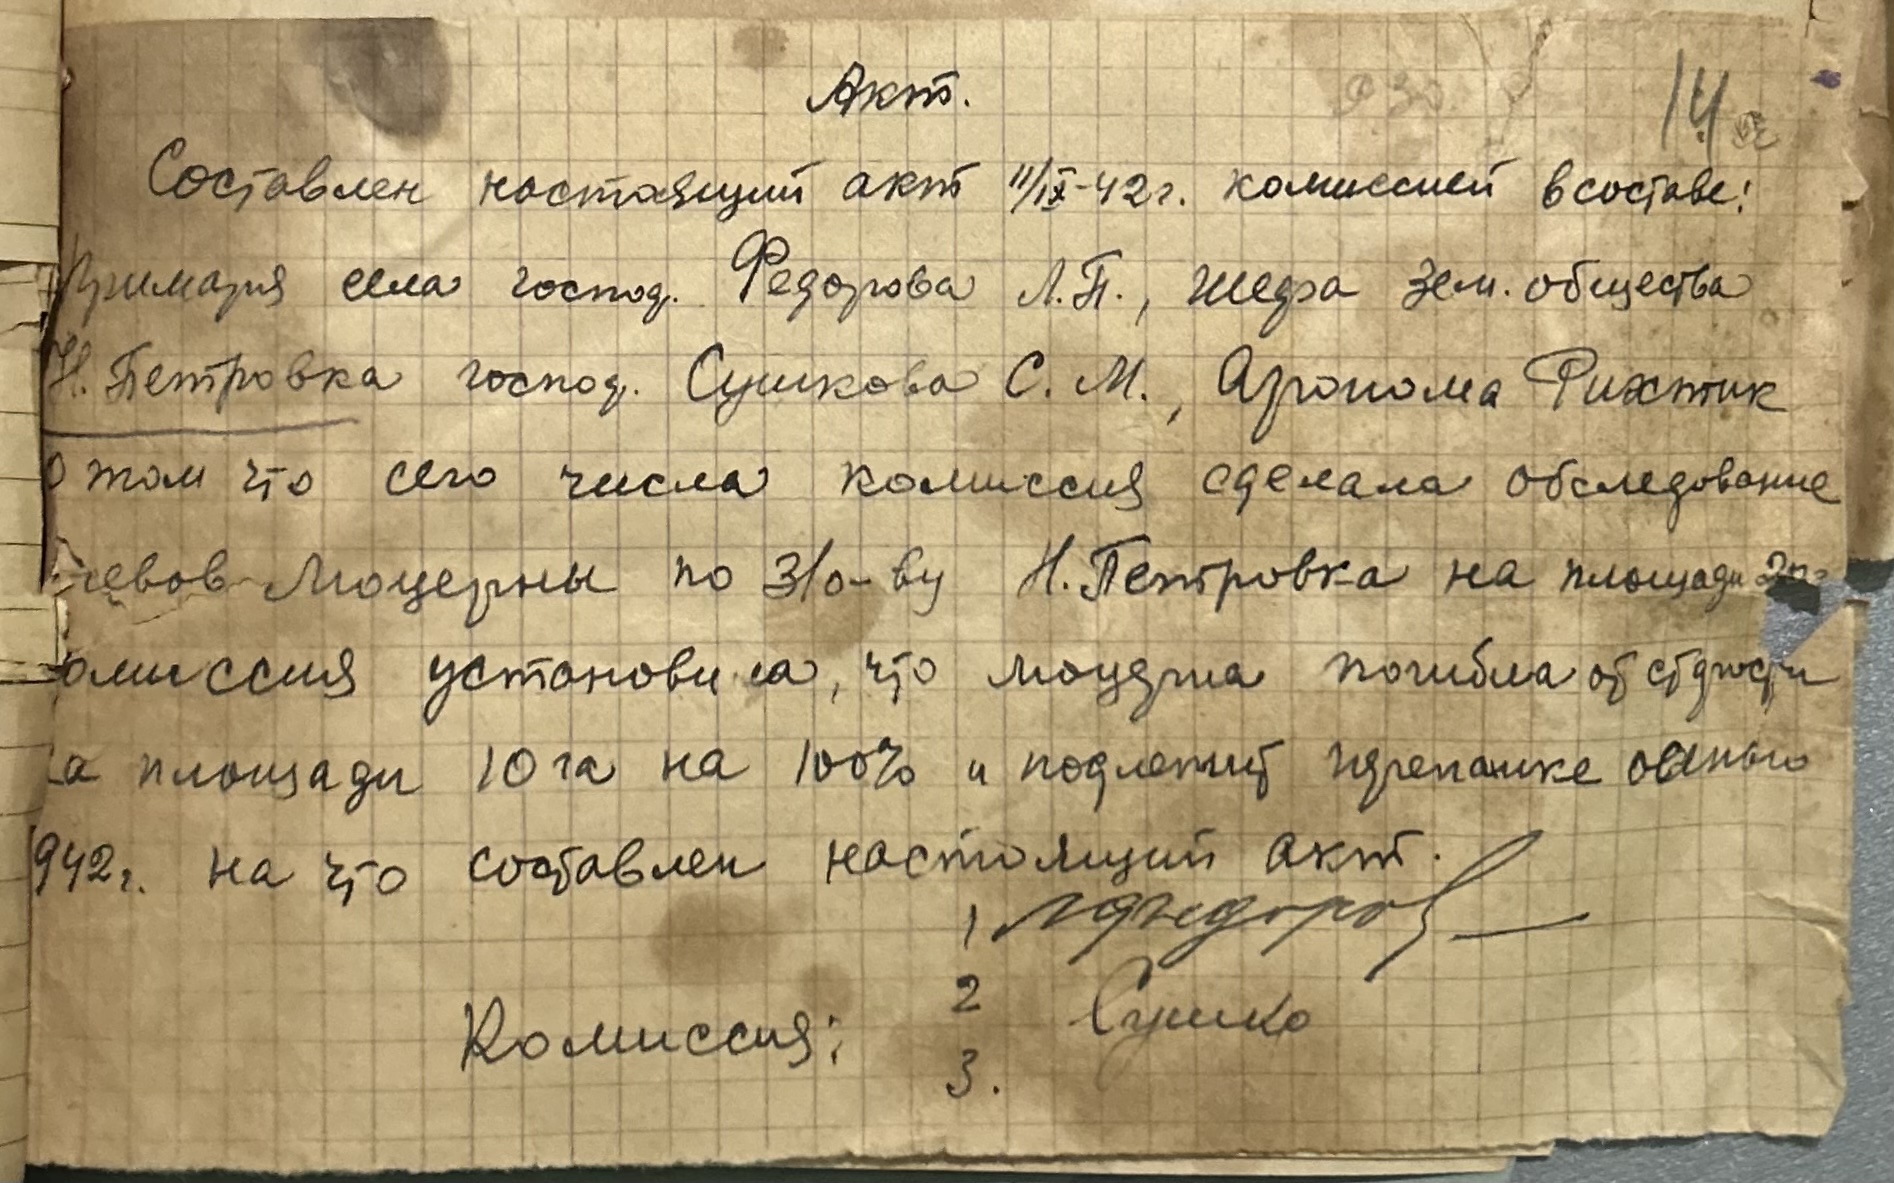 Акт.
14
Составлен настоящий акт 11/IX-42г. комиссией в составе:
Примаря села господ. Федорова Л.П., шефа зем. общества
Н. Петровка господ. Сушкова С. М., Агронома Рихтик
о том что сего числа комиссия сделала обследование
севов люцерны по З/о-ву Н. Петровка на площади
омиссия установила, что люцерна погибла от старости
а площади 10 га на 100% и подлежит перепашке осенью
942г. на что составлен настоящий акт.
1 Лфедоров
2 Сушко
Комиссия:
3.